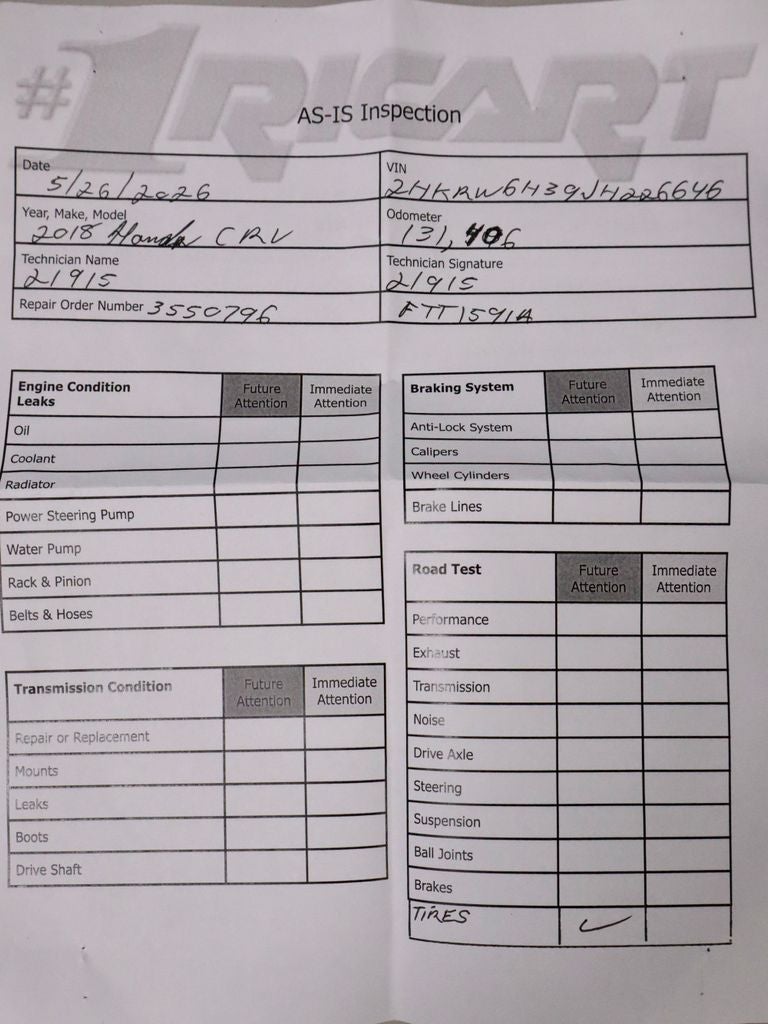 #1 RICART
AS-IS Inspection
Date
5/26/2026
VIN
2HKRW6H39JH226646
Year, Make, Model
2018 Honda CRV
Odometer
131,406
Technician Name
21915
Technician Signature
21915
Repair Order Number 3550796
FTT1591A
Engine Condition Leaks Future Attention Immediate Attention
Oil
Coolant
Radiator
Power Steering Pump
Water Pump
Rack & Pinion
Belts & Hoses
Transmission Condition Future Attention Immediate Attention
Repair or Replacement
Mounts
Leaks
Boots
Drive Shaft
Braking System Future Attention Immediate Attention
Anti-Lock System
Calipers
Wheel Cylinders
Brake Lines
Road Test Future Attention Immediate Attention
Performance
Exhaust
Transmission
Noise
Drive Axle
Steering
Suspension
Ball Joints
Brakes
TIRES ✓